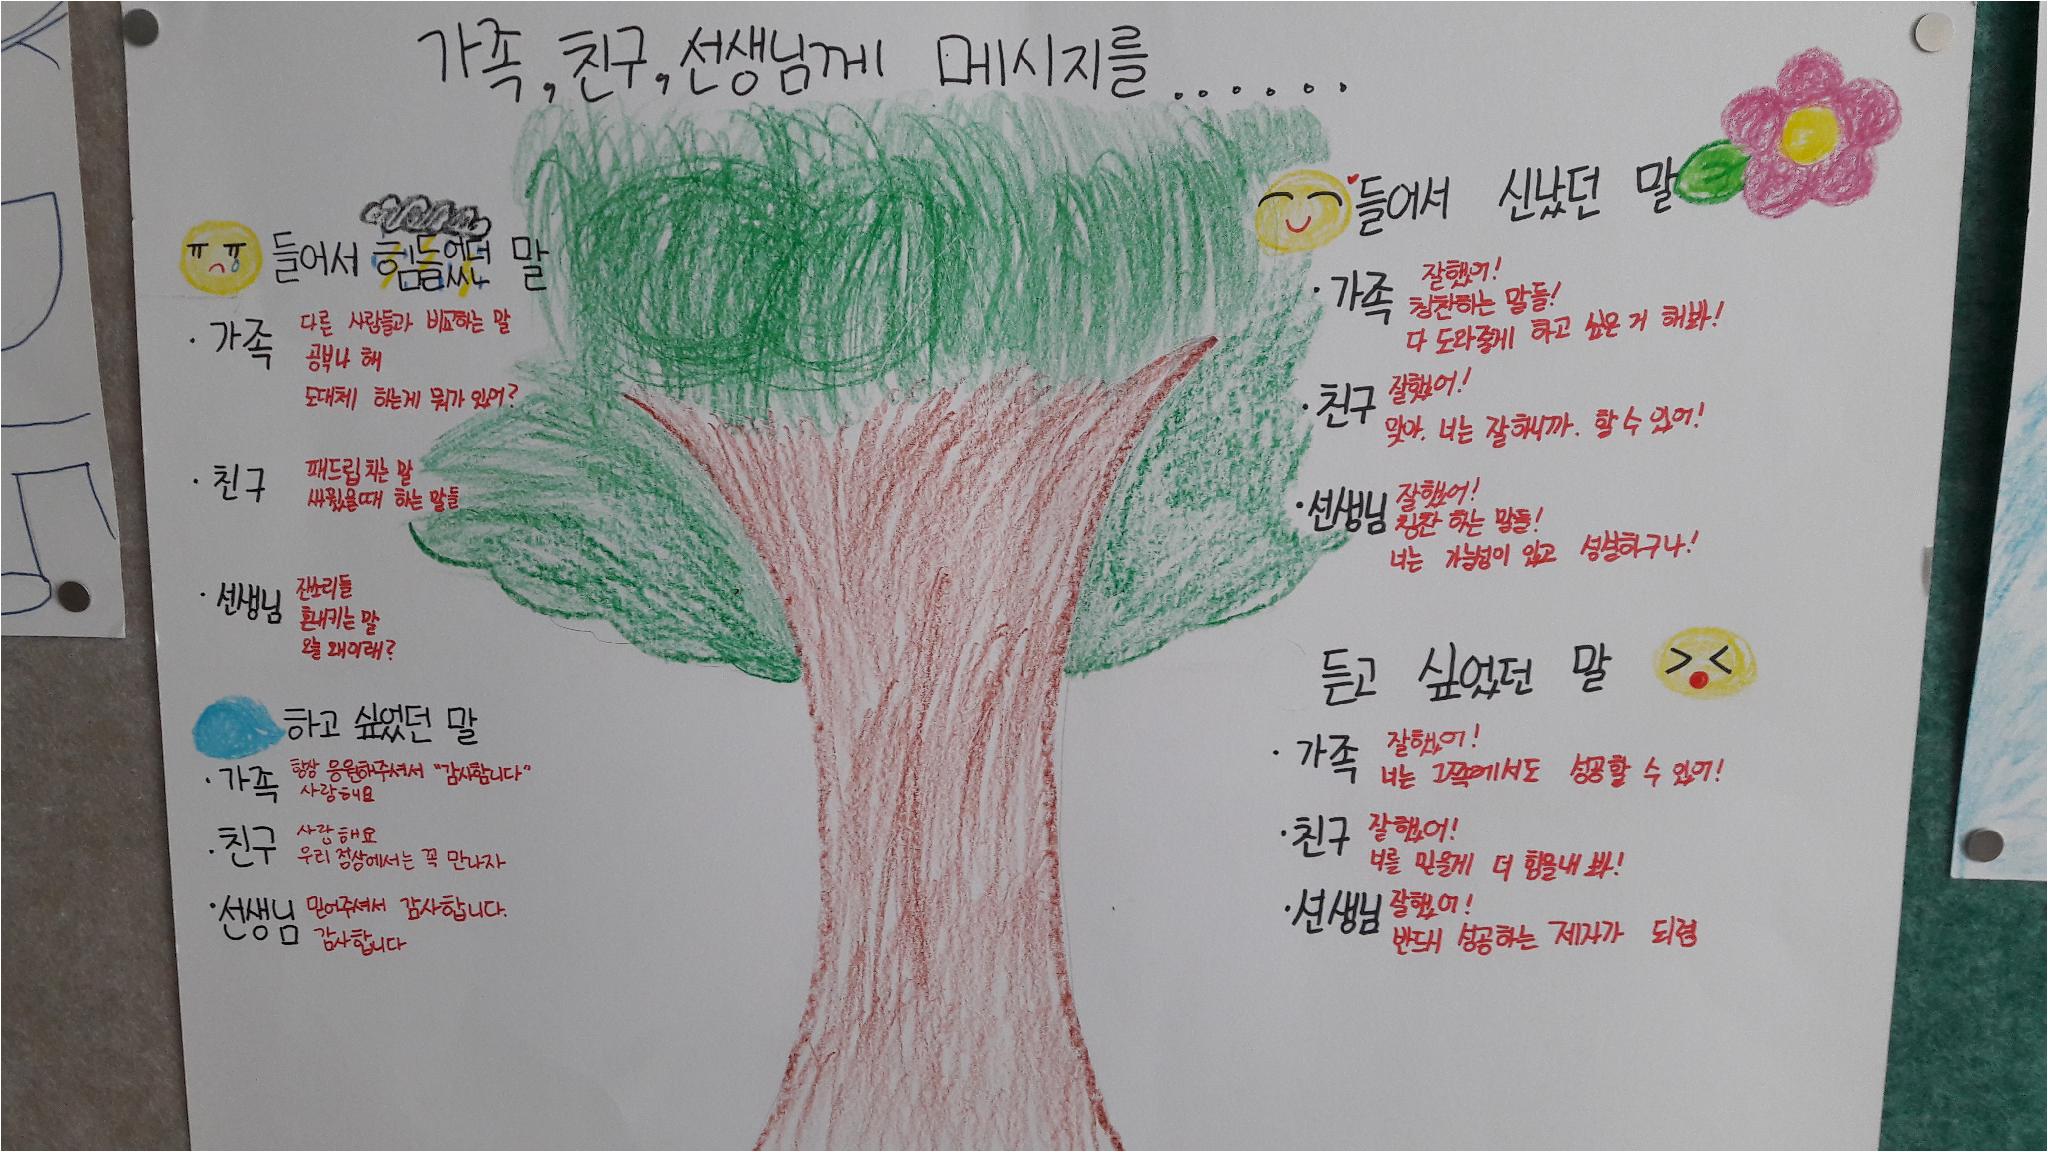 가족, 친구, 선생님께 메시지를......
들어서 힘들었던 말
· 가족
다른 사람들과 비교하는 말
공부나 해
도대체 하는게 뭐가 있어?
· 친구
패드립 치는 말
싸웠을때 하는 말들
· 선생님
잔소리들
혼내키는 말
오늘 왜이래?
하고 싶었던 말
· 가족
항상 응원해주셔서 "감사합니다"
사랑해요
· 친구
사랑해요
우리 정상에서는 꼭 만나자
· 선생님
믿어주셔서 감사합니다.
감사합니다
들어서 신났던 말
· 가족
잘했어!
칭찬하는 말들!
다 도와줄게 하고 싶은 거 해봐!
· 친구
잘했어!
맞아. 너는 잘하니까. 할 수 있어!
· 선생님
잘했어!
칭찬 하는 말들!
너는 가능성이 있고 성실하구나!
듣고 싶었던 말
· 가족
잘했어!
너는 그쪽에서도 성공할 수 있어!
· 친구
잘했어!
너를 믿을게 더 힘을내 봐!
· 선생님
잘했어!
반드시 성공하는 제자가 되렴